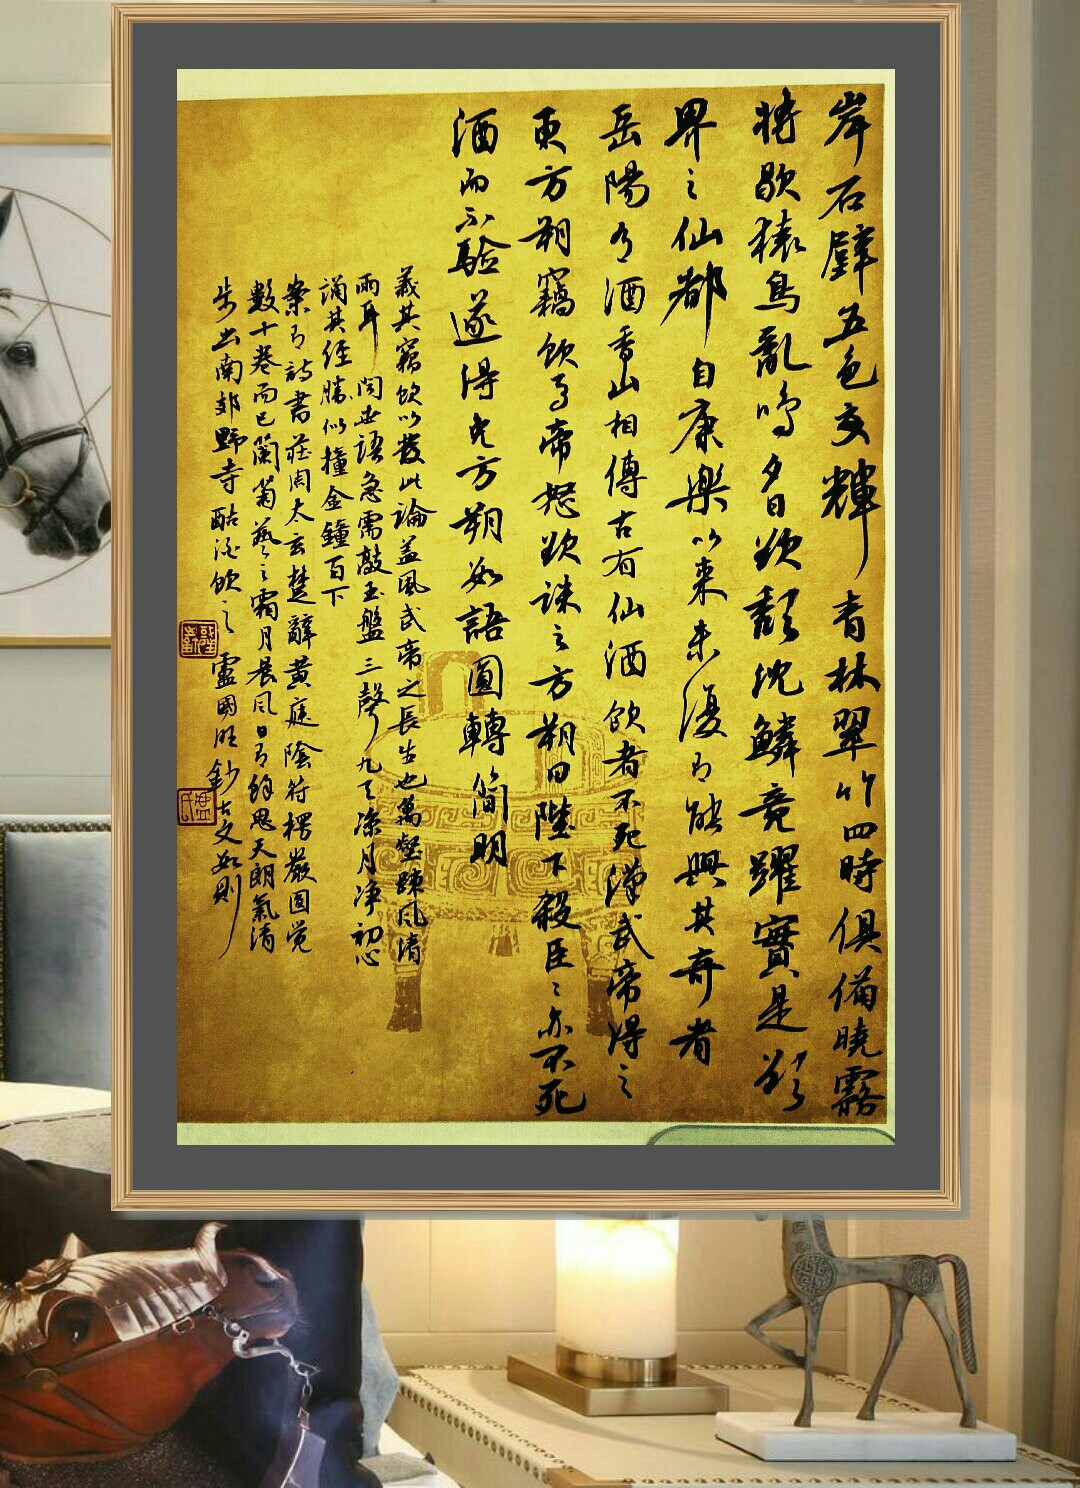 岸石壁五色交輝青林翠竹四時俱備曉霧
將歇猿鳥亂鳴夕日欲頹沈鱗競躍實是欲
界之仙都自康樂以來未復有能與其奇者
岳陽有酒香山相傳古有仙酒飲者不死漢武帝得之
東方朔竊飲焉帝怒欲誅之方朔曰陛下殺臣臣亦不死
酒而不驗遂得免方朔數語圓轉簡明
義其竊飲以發此論蓋風武帝之長生也萬壑疎風清
兩耳聞世語急需敲玉盤三聲九天涼月淨初心
誦其經勝似撞金鐘百下
案有詩書莊周太玄楚辭黃庭陰符楞嚴圓覺
數十卷而已蘭菊藝之霜月晨風日有餘思天朗氣清
步出南郊野寺酤酒飲之盧國旺鈔古文數則